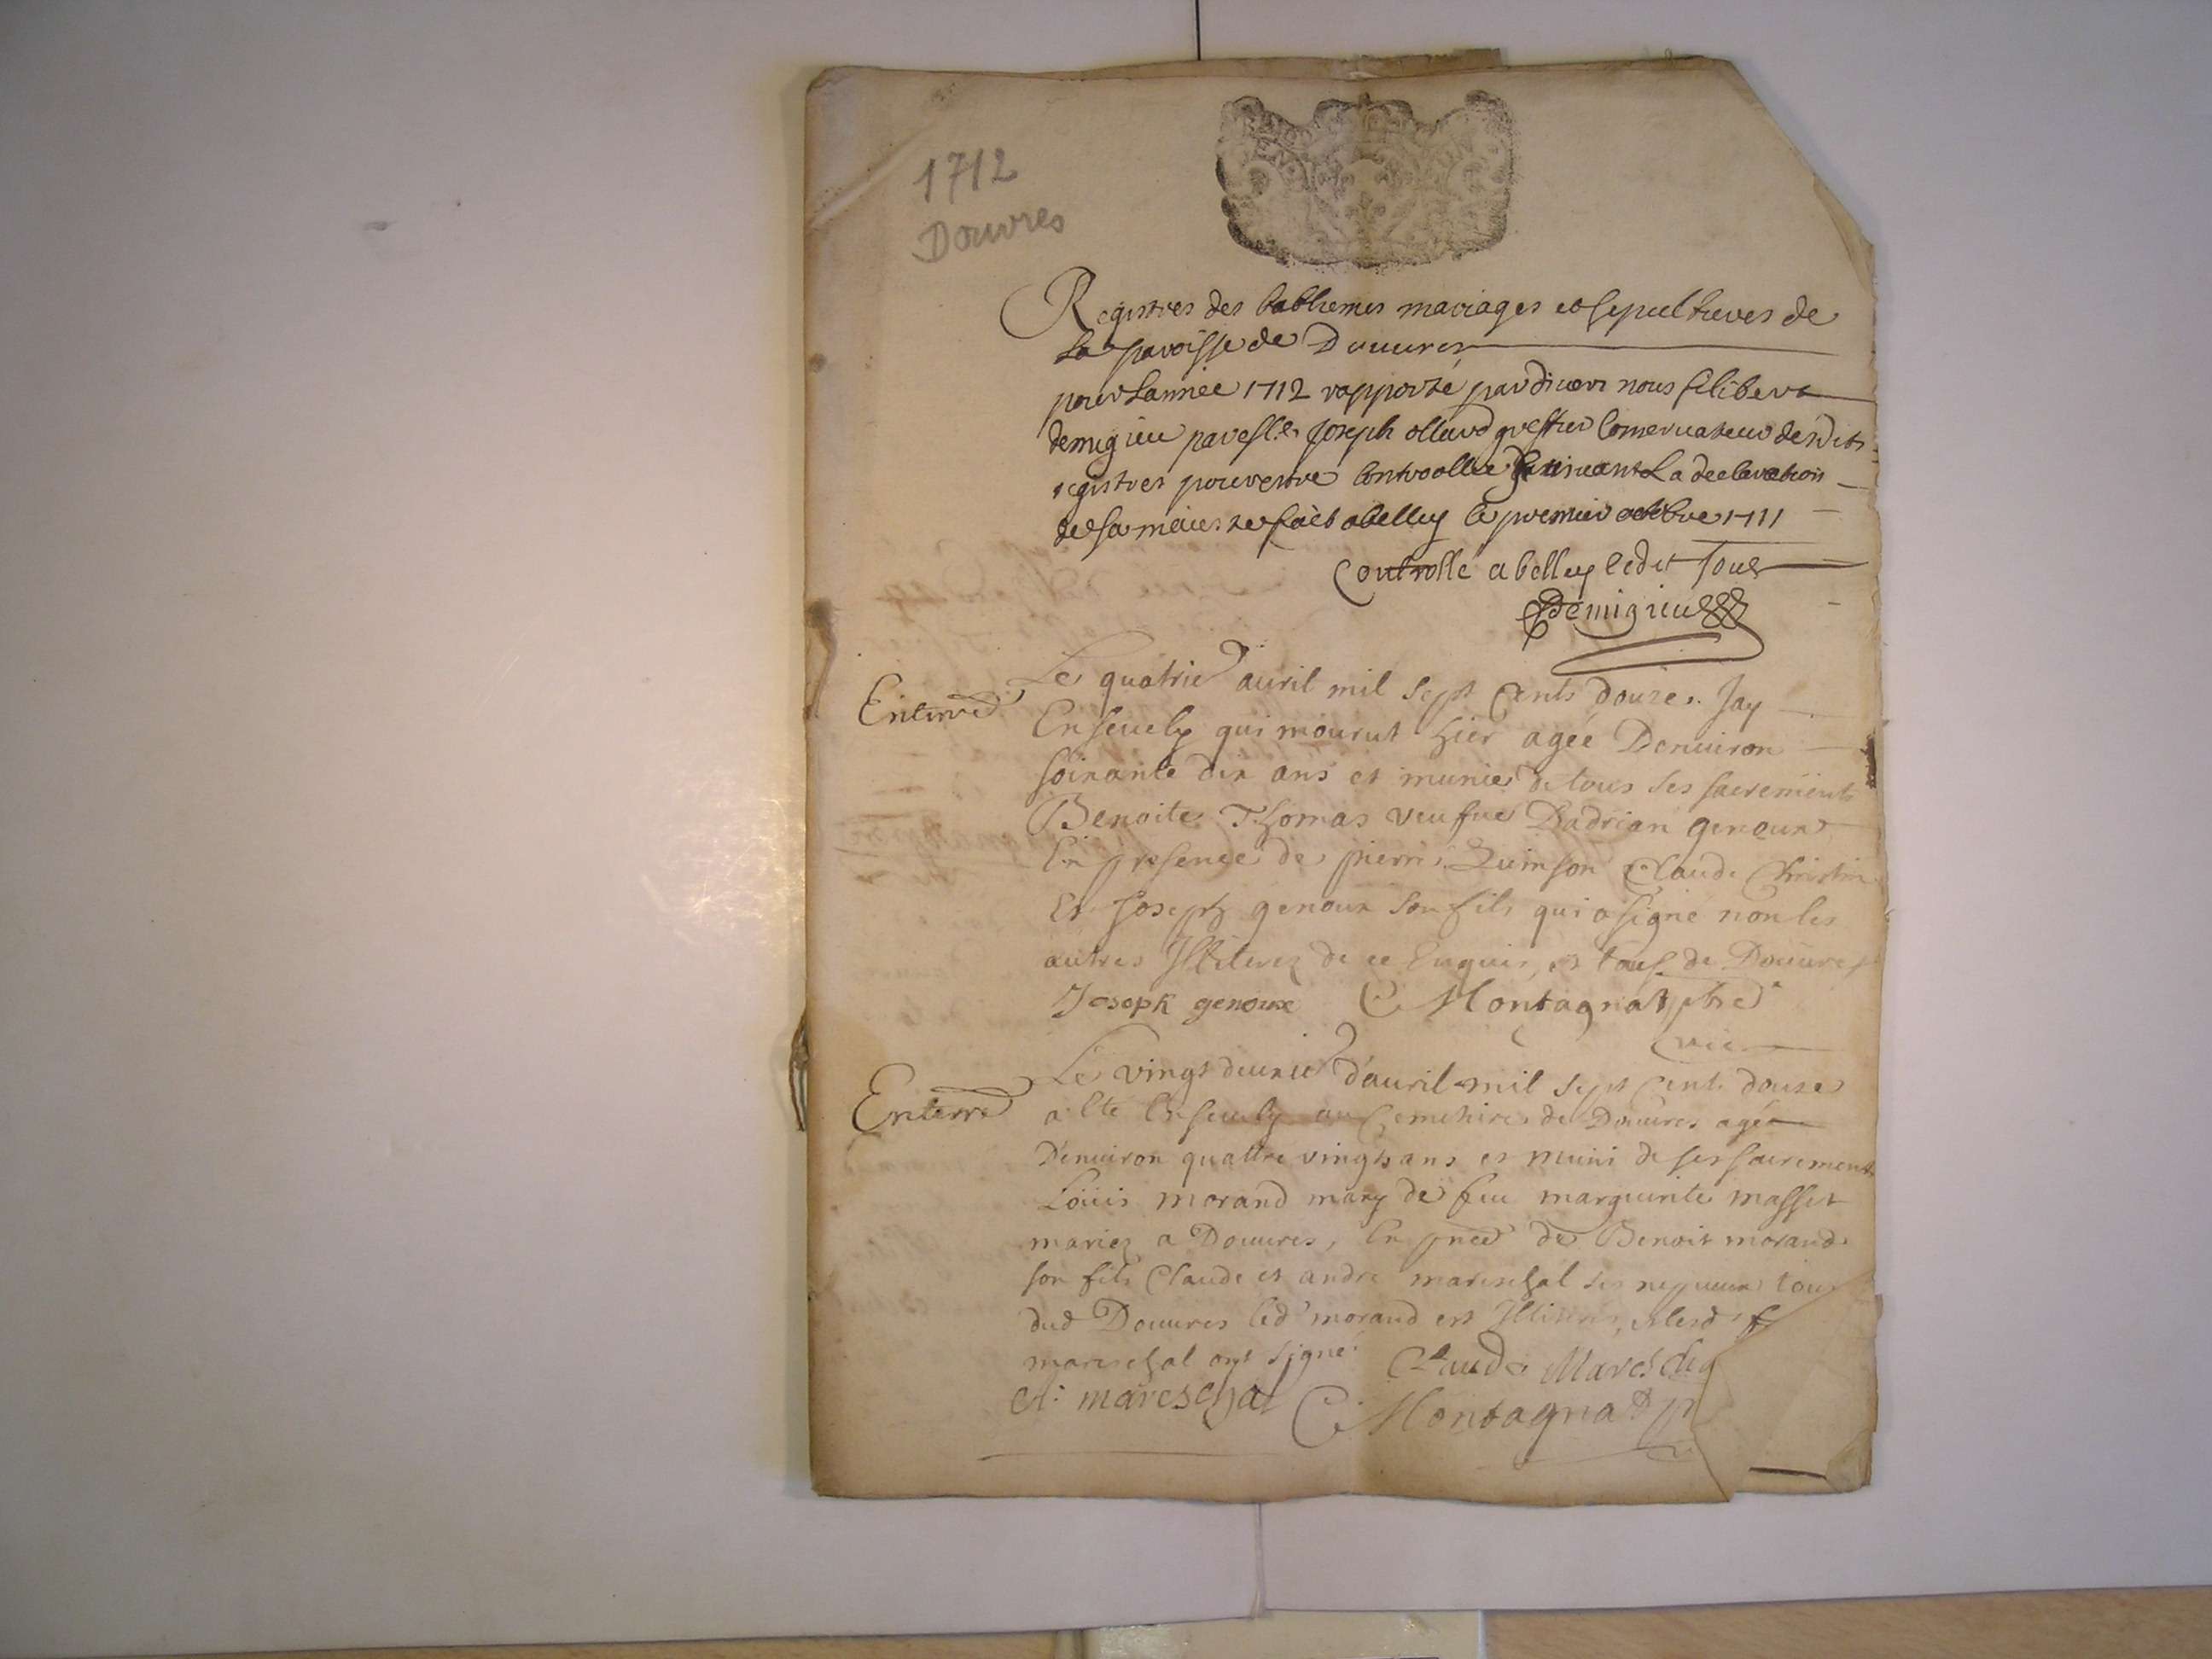 1712
Douvres
Registres des babtiemes mariages et sepultures de
la paroisse de Douures
pour Lannee 1712 rapporté pardieuer nous filibert
demigieu par esle Joseph ollard greffier Conseruateur desdits
registres pour estre Controollee suiuant La declaration
de sa maieste fait a belley le premier octobre 1711
Controllé a belley ledit Jour
Demigieu
Enterré
Le quatrie auril mil sept Cents douze. Jay
Enseuely qui mourut hier agée Denuiron
soixante dix ans et munie de tous ses sacrements
Benoite Thomas veufue Dadrian genoux
En presence de pierre Quinson Claude Christin
Et Joseph genoux son fils qui a signé non les
autres Illiterez de ce Enquis, et tous de Douures
Joseph genoux C Montagnat ptre
vic
Enterré
Le vingt deuxie d'auril mil sept Cents douze
a Eté Enseuely au Cemetiere de Douures agé
D'enuiron quattre vingts ans et muni de ses sacrements
Loüis morand mary de feu marguerite masset
mariez a Douures, En pnce de Benoit morand
son fils Claude et andre mareschal ses nepueux tous
dud Douures led morand est Illiteré, lesd
mareschal ont signé Claude Mareschal
A. mareschal C Montagnat p